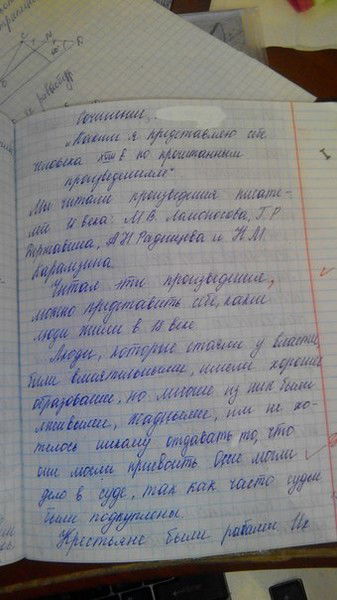 Сочинение.
"Каким я представляю себе
человека XVIII в по прочитанным
произведениям"
Мы читали произведения писате-
лей 18 века: М В. Ломоносова, Г Р
Державина, А Н Радищева и Н М
Карамзина
Читая эти произведения,
можно представить себе, какие
люди жили в 18 веке
Люди, которые стояли у власти
были влиятельными, имели хорошее
образование, но многие из них были
лживыми, жадными, им не хо-
телось никому отдавать то, что
они могли присвоить Они могли
дело в суде, так как часто судьи
были подкуплены.
Крестьяне были рабами Их